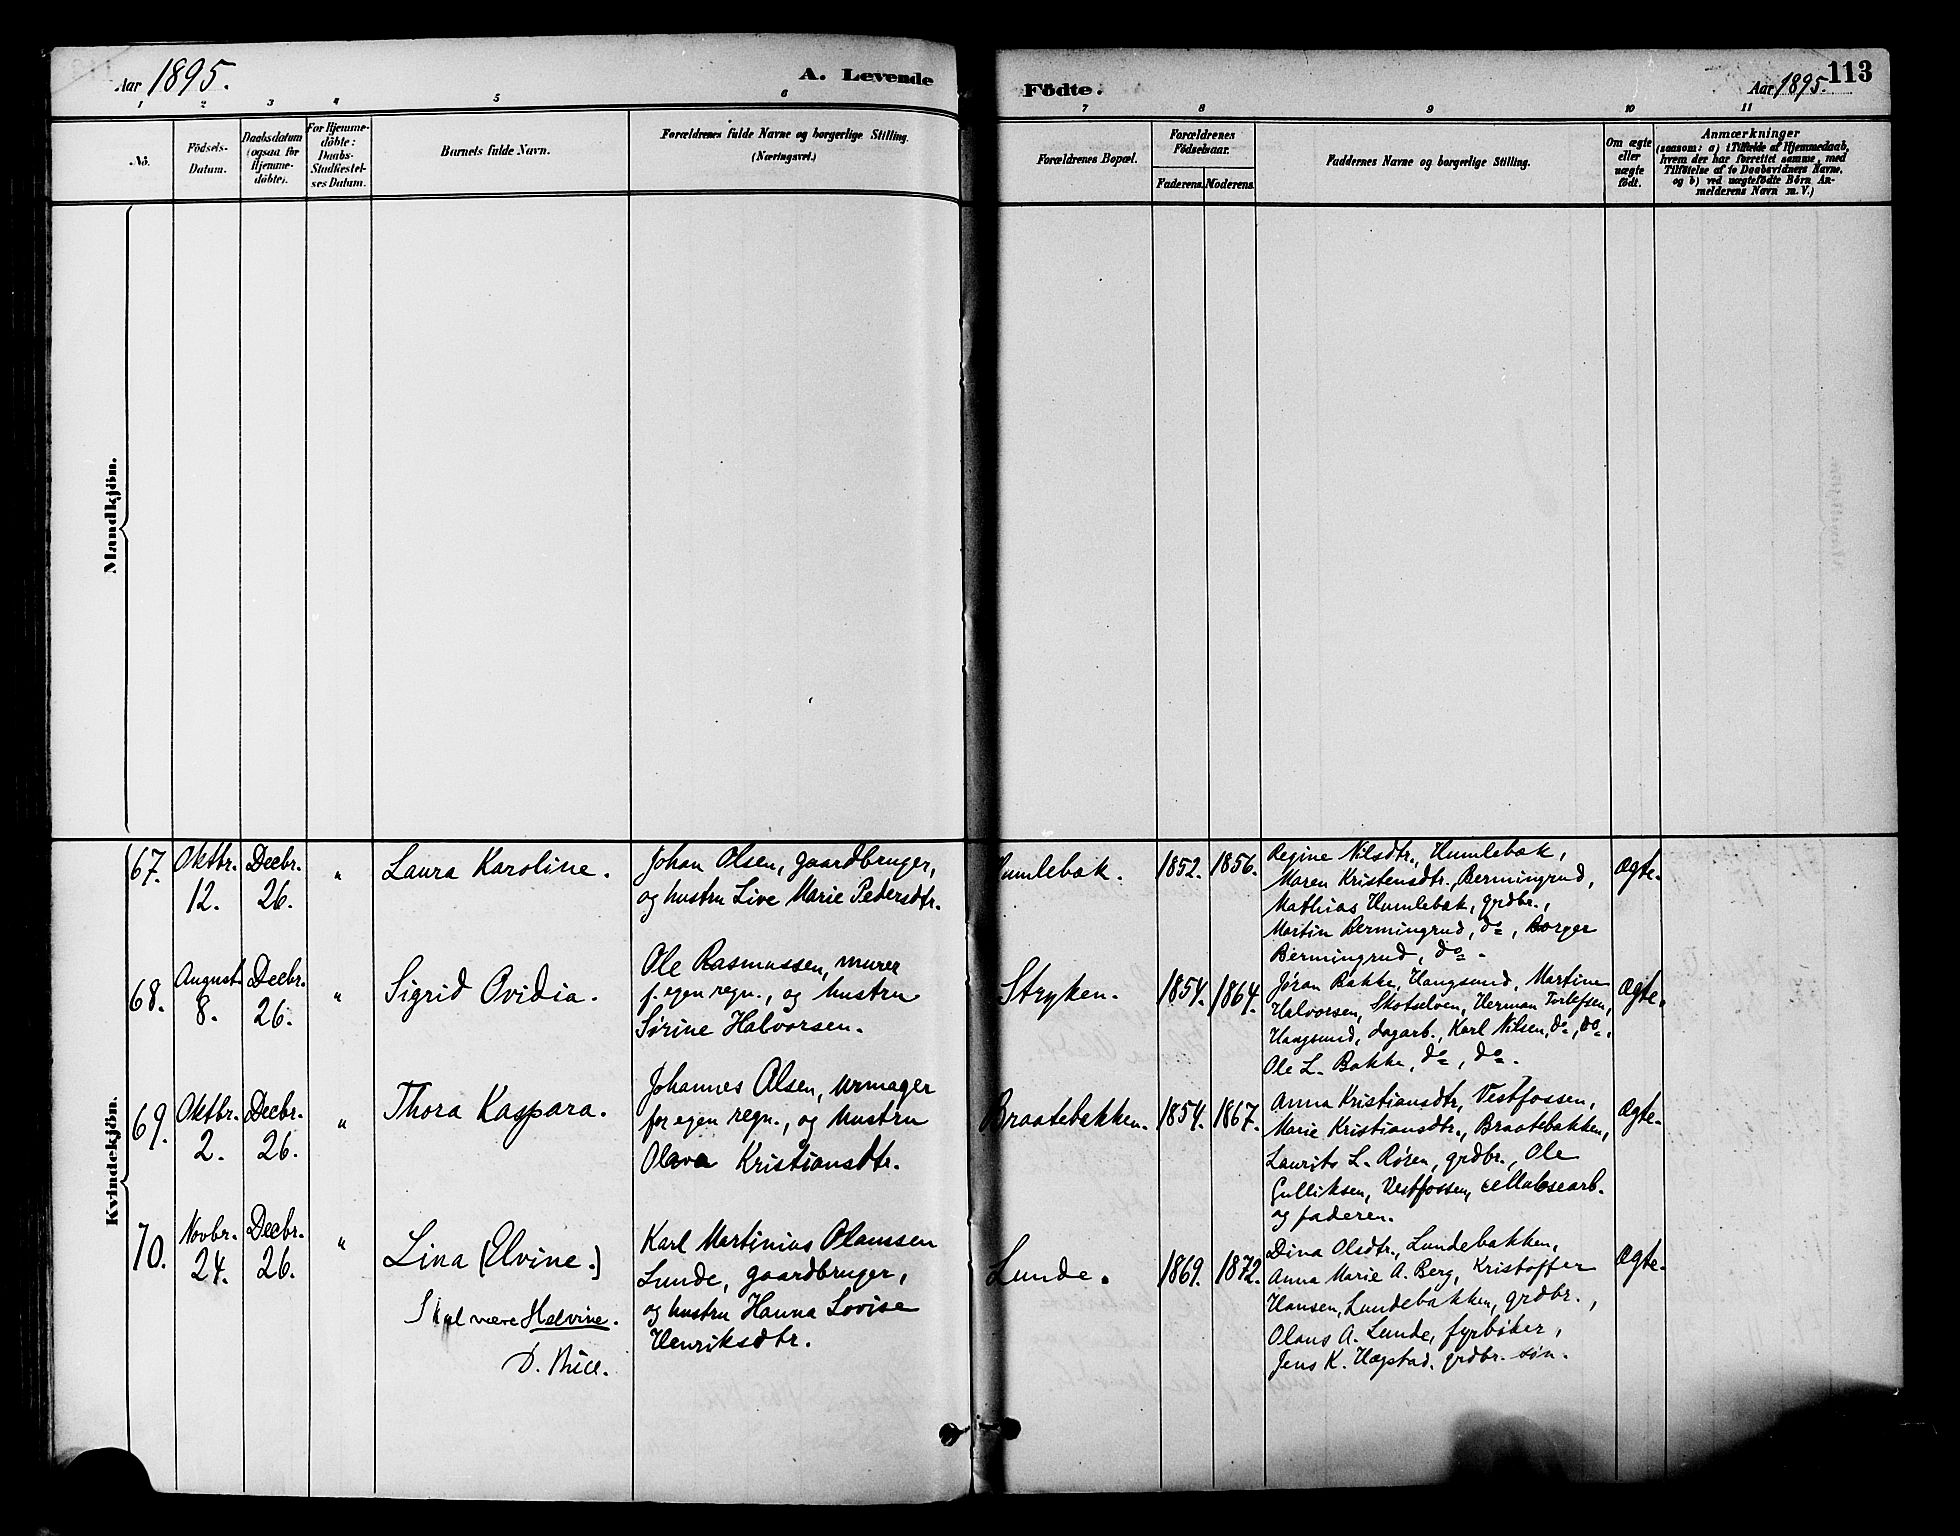 Aar 1895.
A. Levende
Födte.
Aar 1895.
113
1 2 3 4 5 6 7 8 9 10 11
No.
Födsels-
Datum.
Daabsdatum
(ogsaa for
Hjemme-
döbte).
For Hjemme-
döbte:
Daabs-
Stadfæstel-
ses Datum.
Barnets fulde Navn.
Forældrenes fulde Navne og borgerlige Stilling.
(Næringsvei.)
Forældrenes Bopæl.
Forældrenes
Födselsaar.
Faderens. Moderens.
Faddernes Navne og borgerlige Stilling.
Om ægte
eller
uægte
födt.
Anmærkninger
(saasom: a) i Tilfælde af Hjemmedaab,
hvem der har forrettet samme, med
Tilföielse af to Daabsvidners Navne,
og b) ved uægtefödte Börn An-
melderens Navn m. V.)
Mandkjön.
Kvindekjön.
67.
Oktbr.
12.
Decbr.
26.
"
Laura Karoline.
Johan Olsen, gaardbruger,
og hustru Live Marie Pedersdtr.
Humlebæk.
1852.
1856.
Regine Nilsdtr., Humlebæk,
Maren Kristensdtr. Bermingrud,
Mathias Humlebæk, grdbr.,
Martin Bermingrud, do, Borger
Bermingrud, do.
Ægte.
68.
August
8.
Decbr.
26.
"
Sigrid Ovidia.
Ole Rasmussen, murer
f. egen regn., og hustru
Sørine Halvorsen.
Stryken.
1854.
1864.
Jøran Bakke, Haugsund, Martine
Halvorsen, Skotselven, Herman Torlefsen,
Haugsund, dagarb., Karl Nilsen, do, do,
Ole L. Bakke, do, do.
Ægte.
69.
Oktbr.
2.
Decbr.
26.
"
Thora Kaspara.
Johannes Olsen, urmager
for egen regn., og hustru
Olava Kristiansdtr.
Braatebakken.
1854.
1867.
Anna Kristiansdtr, Vestfossen,
Marie Kristiansdtr., Braatebakken,
Laurits L. Røren, grdbr., Ole
Gulliksen, Vestfossen, cellulosearb.
og faderen.
Ægte.
70.
Novbr.
24.
Decbr.
26.
"
Lina (Elvine.)
Skal være Halvine.
D. Thice.
Karl Martinius Olaussen
Lunde, gaardbruger,
og hustru Hanna Lovise
Henriksdtr.
Lunde.
1869.
1872.
Dina Olsdtr., Lundebakken,
Anna Marie A. Berg, Kristoffer
Hansen, Lundebakken, grdbr.,
Olaus A. Lunde, fyrbøter,
Jens K. Hægstad, grdbr. søn.
Ægte.